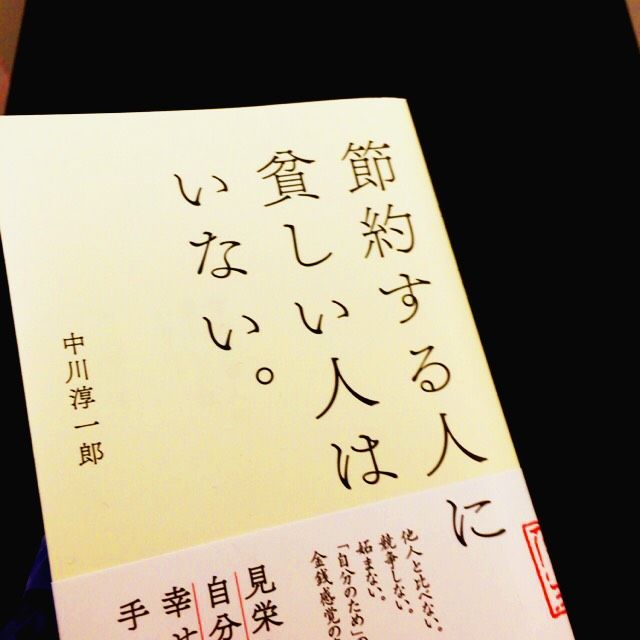 節約する人に
貧しい人は
いない。
中川淳一郎
他人と比べない。
競争しない。
妬まない。
「自分のため」の
金銭感覚の
見栄
自分
幸せ
手